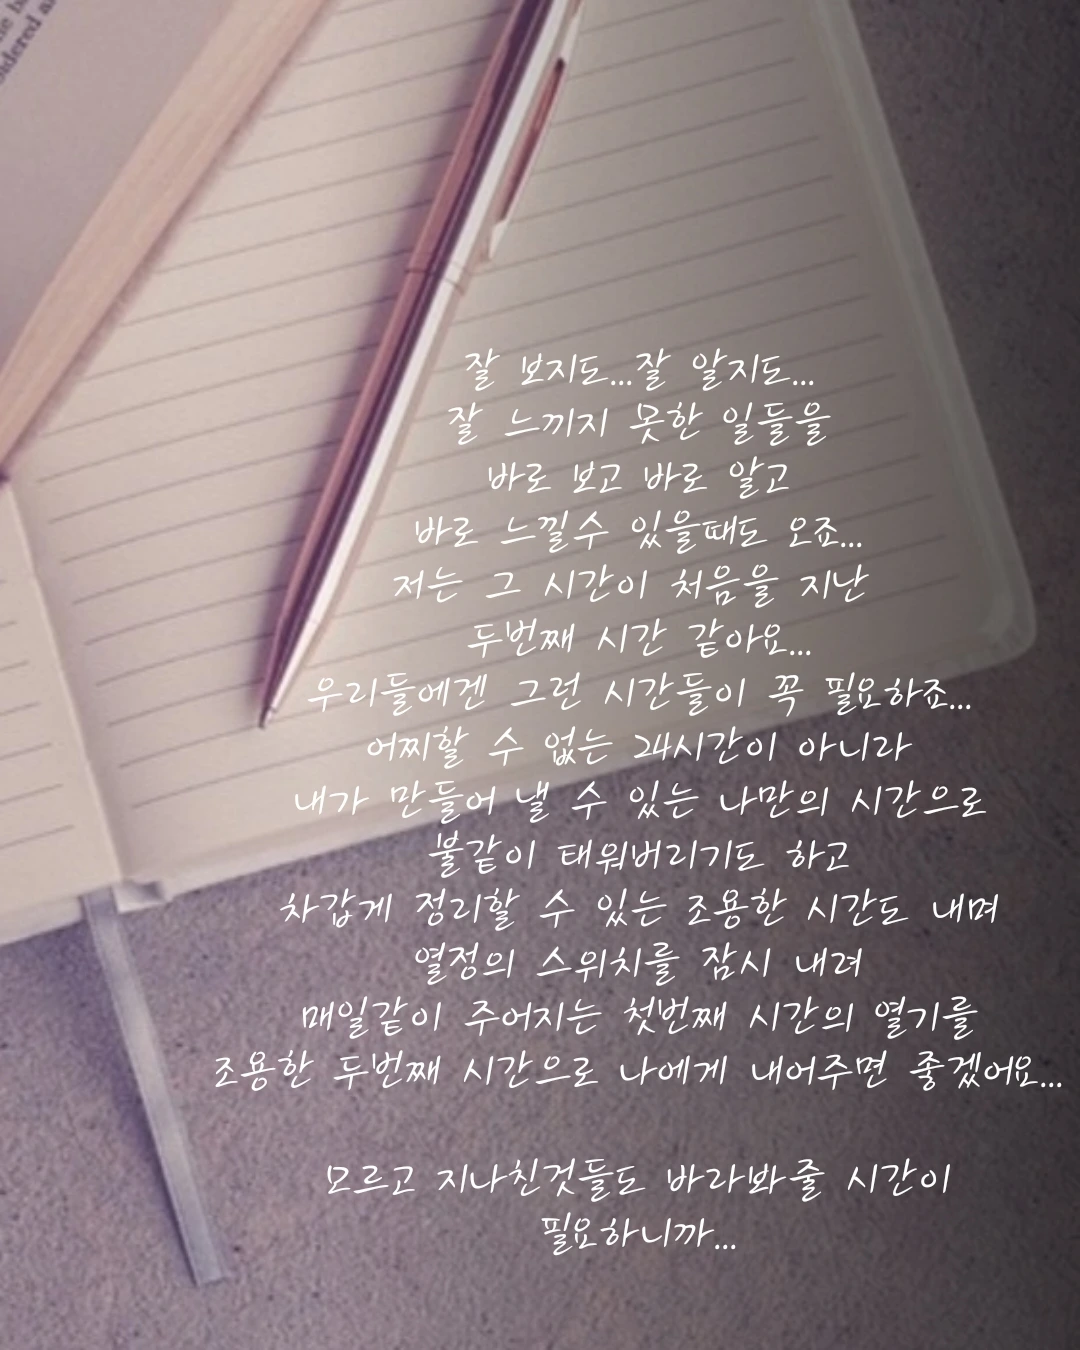 잘 보지도...잘 알지도...
잘 느끼지 못한 일들을
바로 보고 바로 알고
바로 느낄수 있을때도 오죠...
저는 그 시간이 처음을 지난
두번째 시간 같아요...
우리들에겐 그런 시간들이 꼭 필요하죠...
어찌할 수 없는 24시간이 아니라
내가 만들어 낼 수 있는 나만의 시간으로
불같이 태워버리기도 하고
차갑게 정리할 수 있는 조용한 시간도 내며
열정의 스위치를 잠시 내려
매일같이 주어지는 첫번째 시간의 열기를
조용한 두번째 시간으로 나에게 내어주면 좋겠어요...
모르고 지나친것들도 바라봐줄 시간이
필요하니까...